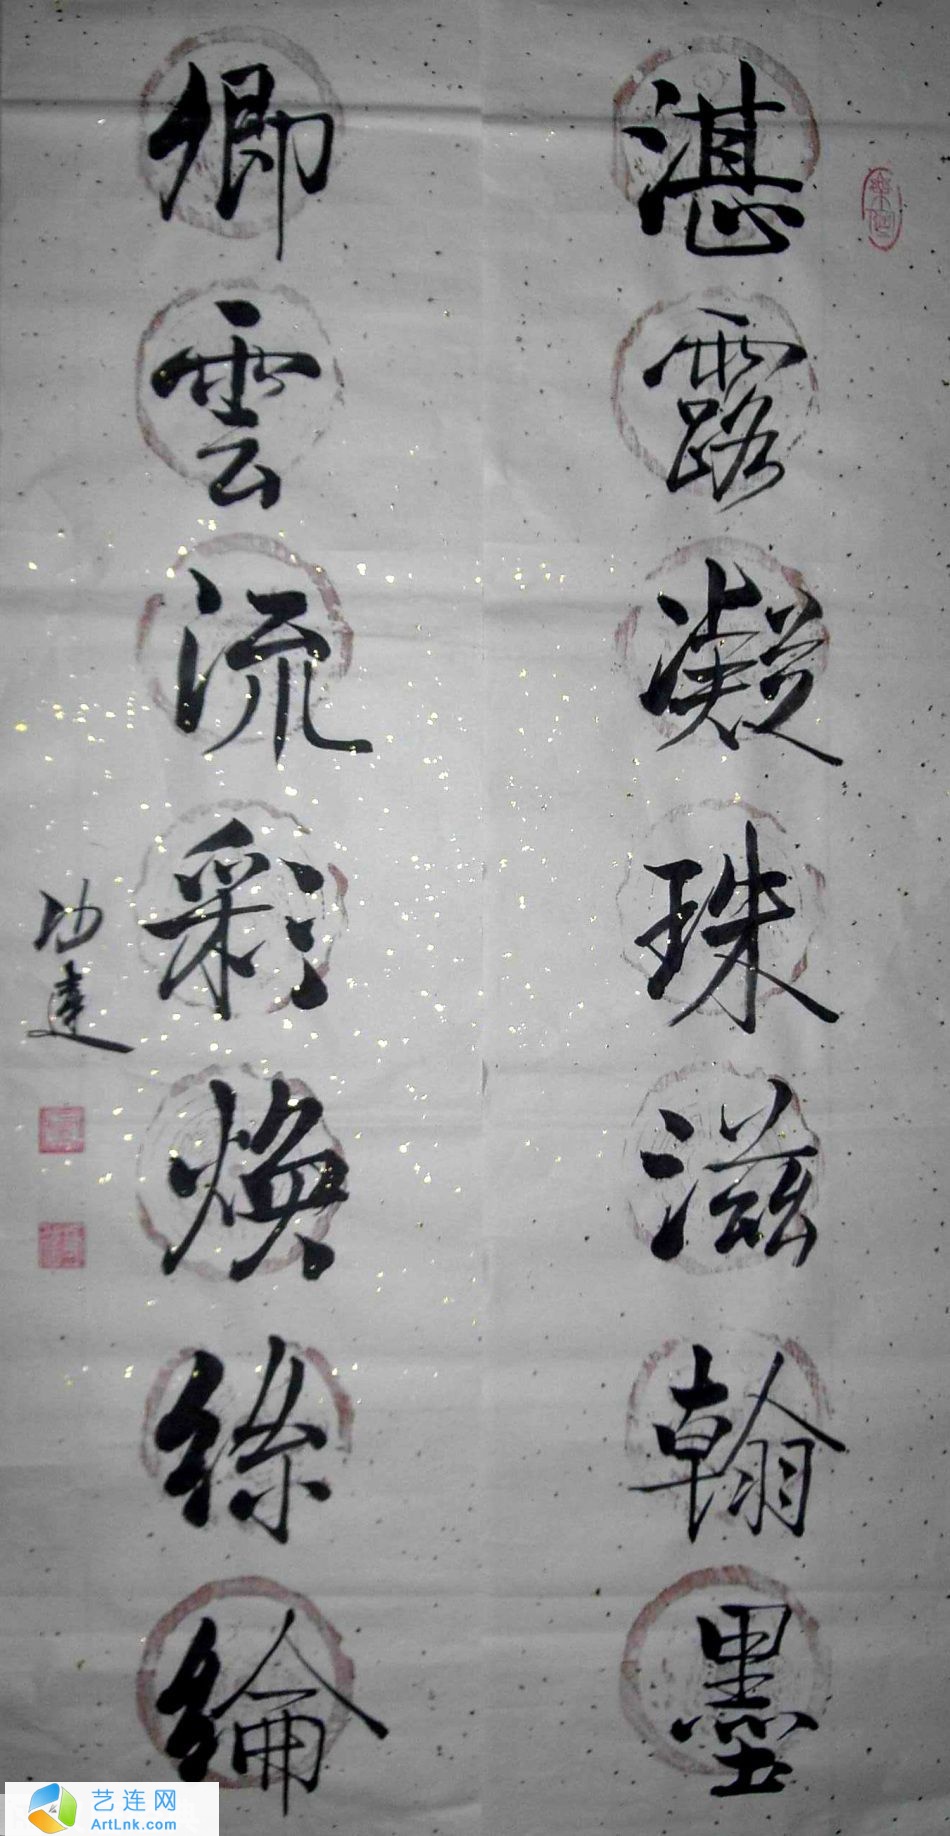 湛露凝珠滋翰墨
卿雲流彩焕絲綸
功達
艺连网
ArtLnk.com